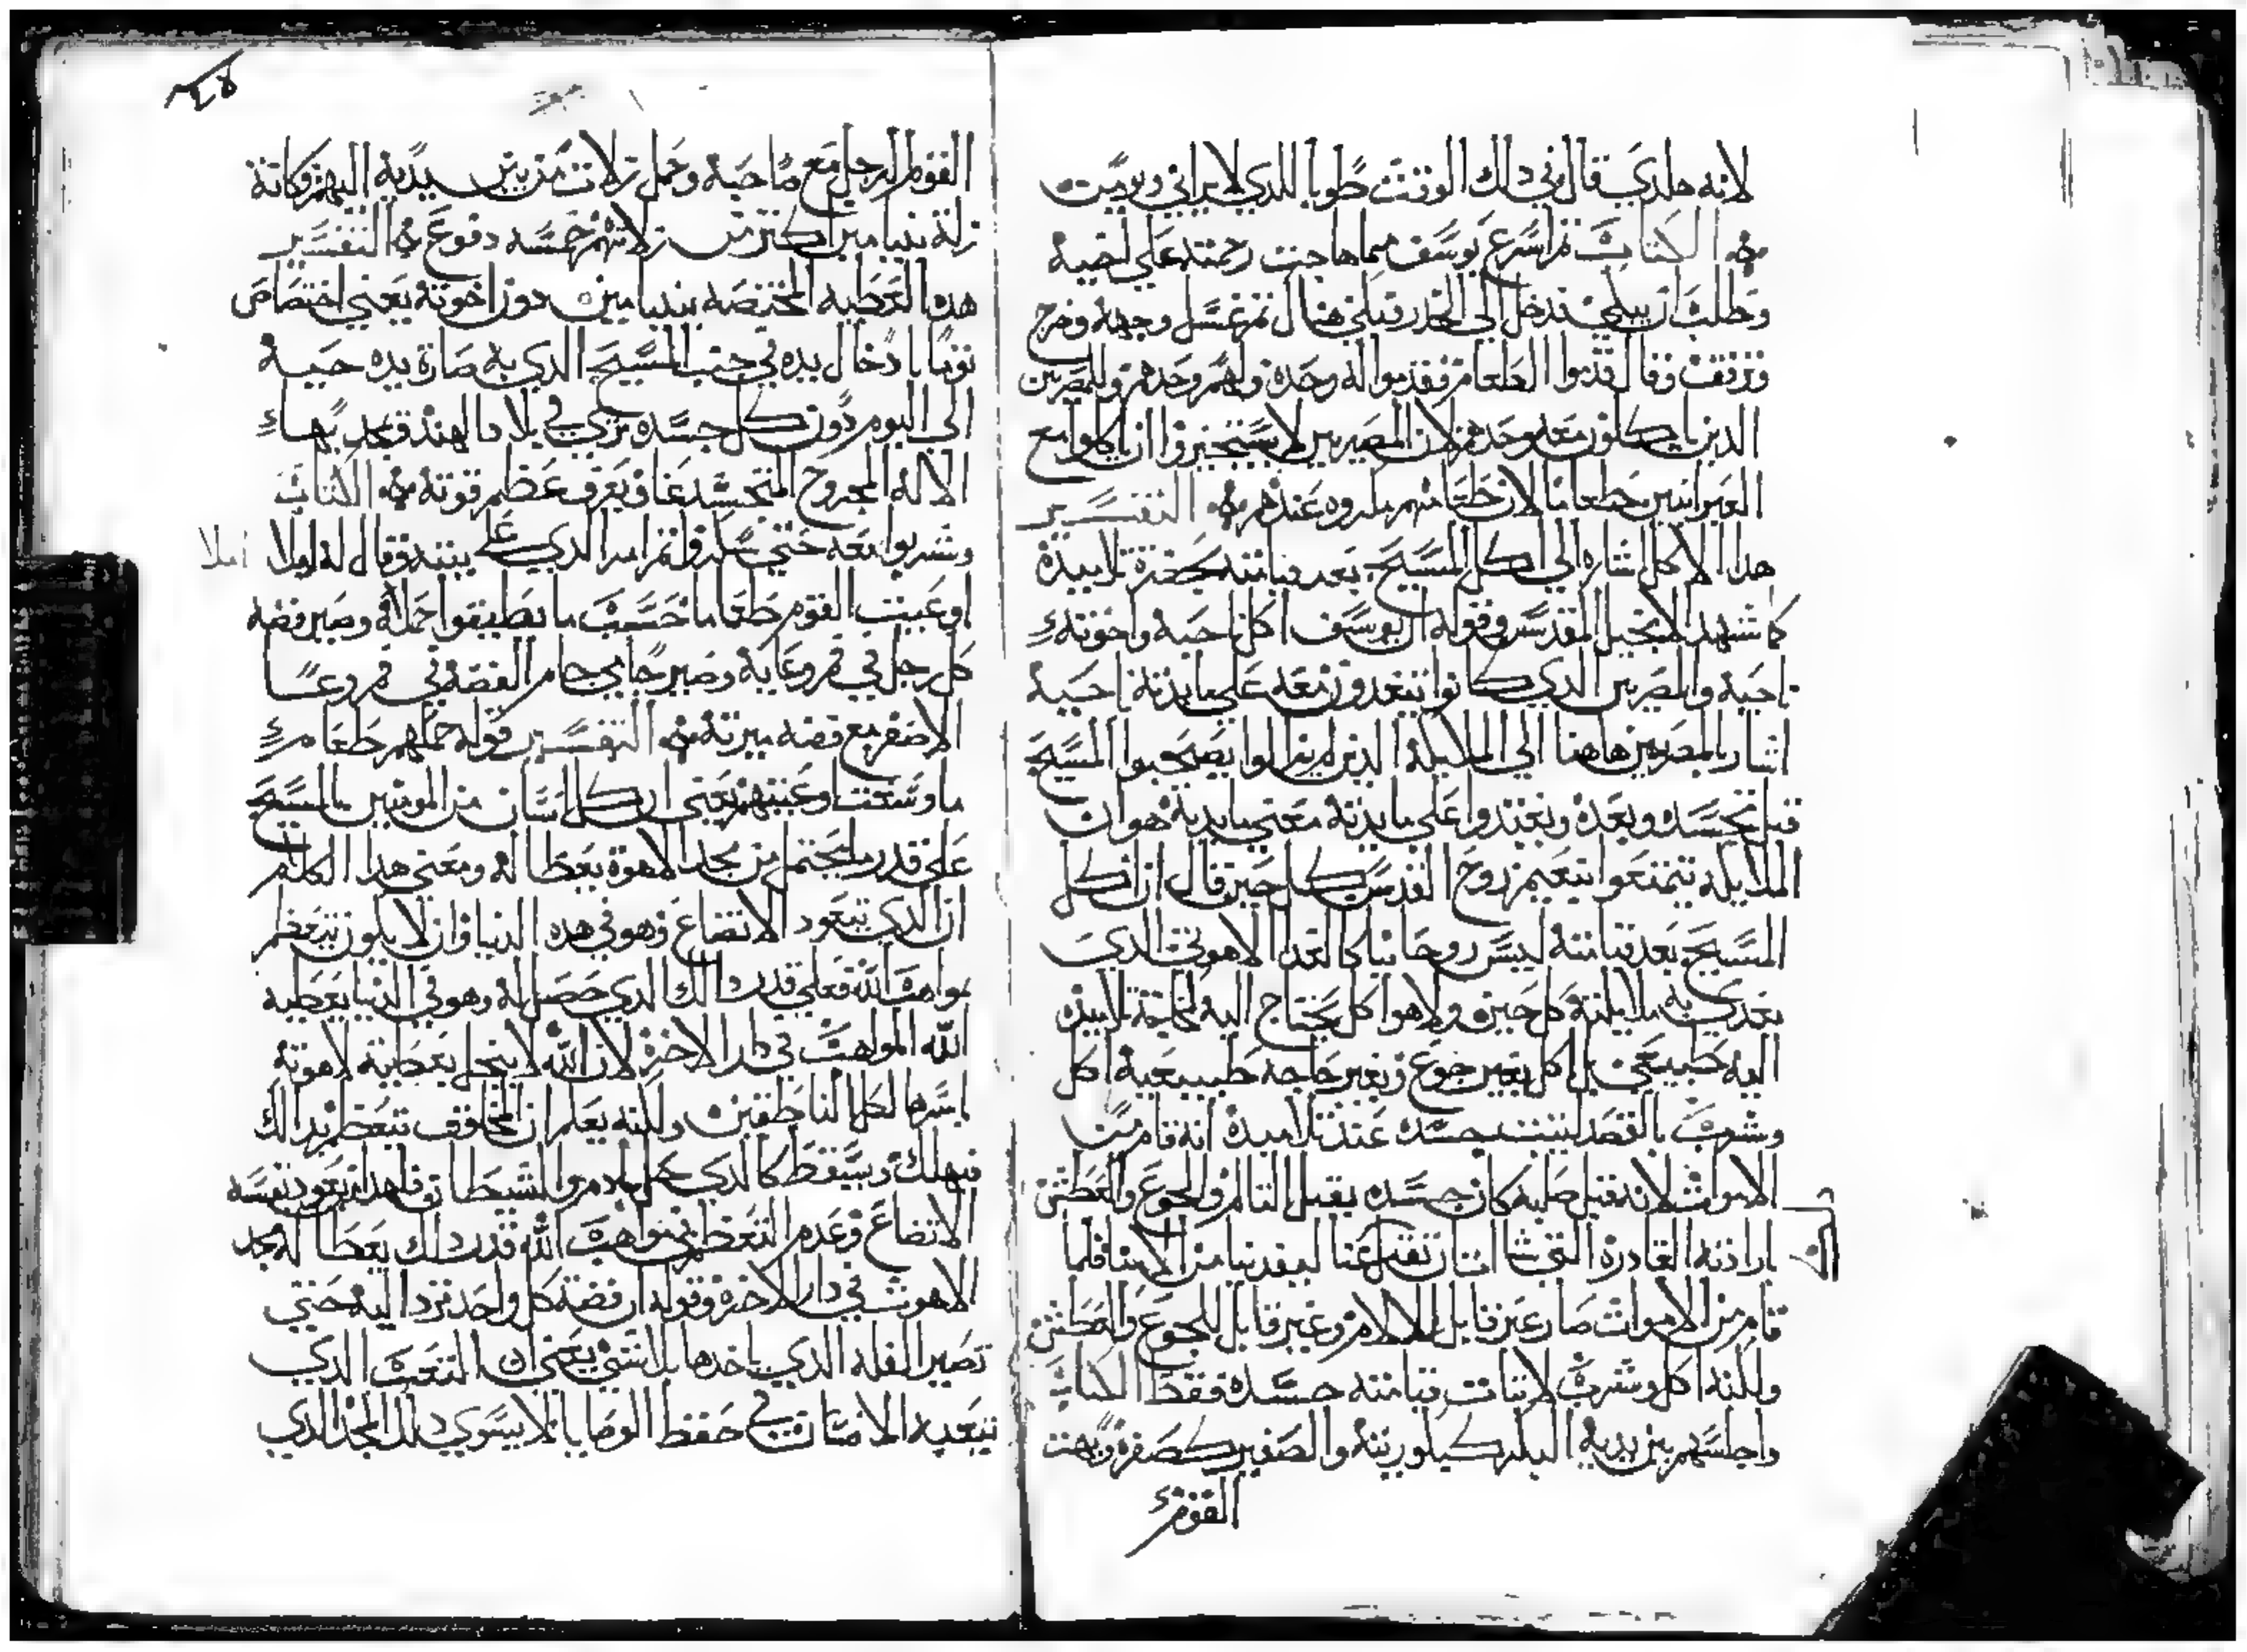 لانه هلدي قال في دلك الوقت طوبا للدي لا يراني ويومن
الكتاب تم اسرع يوسف مما هاجت رحمته علي اخيه
وطلب ان يبكي فدخل الي الخدر فبكي هناك تم غسل وجهه وخرج
وترفق وقال قدموا الطعام فقدموا له وحده ولهم وحدهم وللمصريين
الدين ياكلون معه وحدهم لان المصريين لا يستجيزوا ان ياكلوا مع
العبرانيين طعاما لان طعامهم مكروه عندهم التفسير
هدا الاكل اشاره الي اكل المسيح بعد قيامته بحضرة تلاميده
كما شهد الانجيل المقدس وقوله ان يوسف اكل ناحيه واخوته
ناحيه والمصريين الدي كانوا يتغدون معه علي مايدته ناحيه
اشار بالمصريين هاهنا الي الملايكة الدين لم يزالوا يصحبوا المسيح
قبل تجسده وبعده ويغتدوا علي مايدته معني مايدته هو ان
الملايكه تتمتعوا بنعيم روح القدس كل حين قال ان اكل
المسيح بعد قيامته ليس روحانيا كالغدا الاهوتي الدي
يغدي به ملايكته كل حين ولا هو اكل يحتاج اليه لحاجة تلاميده
اليه طبيعي بل اكل بغير جوع وبغير حاجه طبيعيه اكل
وشرب بالقصد ليتبت جسده عند تلاميده انه قام من
الاموات لانه قبل صلبه كان جسده يقبل التالم والجوع والعطش
بارادته القادرة التي شا ان تقبل عنا ليفدينا من الامنا فلما
قام من الاموات صار غير قابل للالام وغير قابل للجوع والعطش
ولكنه اكل وشرب لاتبات قيامته جسده فقط الكتاب
واجلسهم بين يديه البكر كبكوريته والصغير كصغره وبهت
القوم
القوم الرجل مع صاحبه وحمل نزلات من بين يديه اليهم وكانة
نزلة بنيامين اكتر من نزلاتهم خمسه دفوع التفسير
هده العطيه المختصه ببنيامين دون اخوته يعني اختصاص
توما بادخال يده في جنب المسيح الدي به صارة يده حيه
الي اليوم دون كل جسده تري في بلاد الهند وتجد بها
الاله المجروح المتجسد عنا وتعرف عظم قوته الكتاب
وشربوا معه حتي سكروا تم امر الدي علي بيته وقال له املا املا
اوعيت القوم طعاما حسب ما يطيقوا حمله وصير فضه
كل رجل في فم وعايه وصير جامي جام الفضه في فم وعا
الاصغر مع فضه ميرته التفسير قوله حملهم طعام
ما وسعت اوعيتهم يعني ان كل انسان من المومنين بالمسيح
علي قدر ما يحتمل من مجد لاهوة يعطا له ومعني هدا الكلام
ان الدي تبعود الاتضاع وهو في هده الدنيا وان لا يكون يتعظم
بمواهب الله فعلي قدر دالك الدي حصل له وهو في الدنيا يعطيه
الله المواهب في دار الاخره لان الله لا يبخل بعطية لاهوته
باسرها لكل الناطقين ولكنه يعلم ان المخلوق يتعظم بدالك
فيهلك ويسقط كالدي حل بادم والشيطان فلهدا تعود نفسه
الاتضاع وعدم التعظم في مواهب الله قدر دلك يعطا له مجد
الاهوت في دار الاخره وقوله ان فضة كل واحد ترد اليه حتي
تصير الغله الدي ياخدها بلا شي يعني ان التعب الدي
يتعبه الانسان في حفظ الوصايا لا يسوي دلك المجد الدي